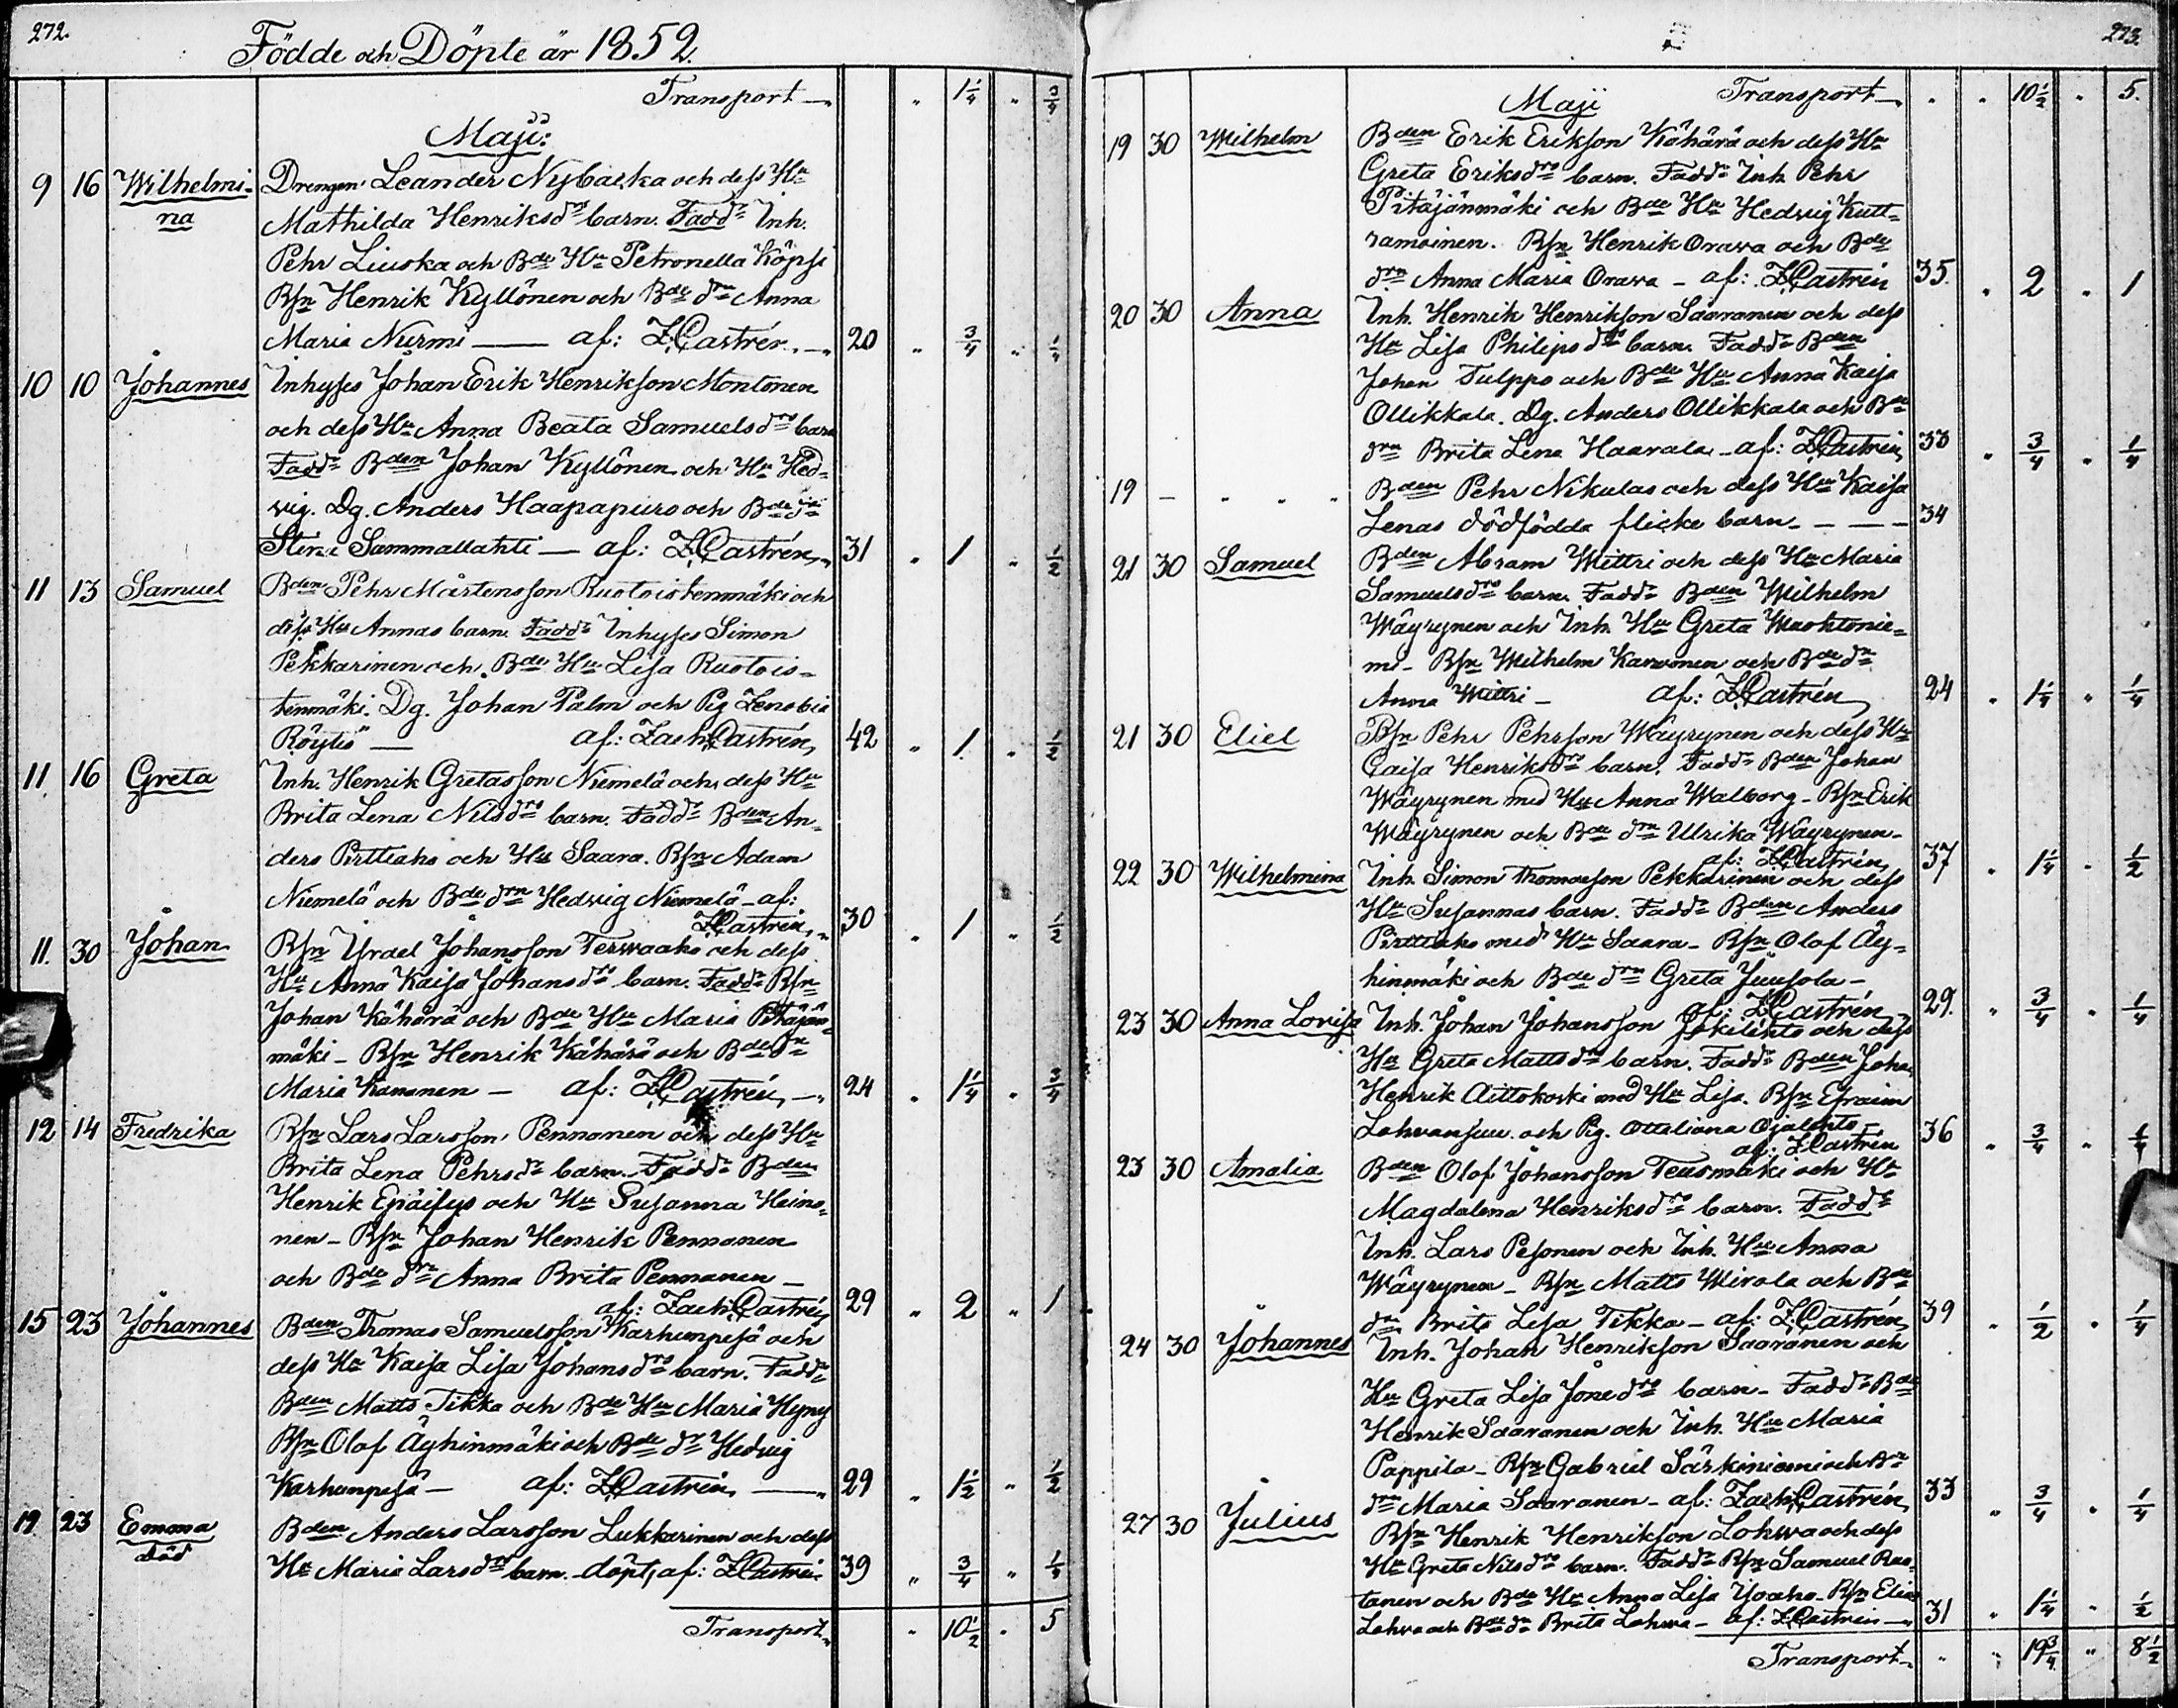 272.
Födde och Döpte år 1852.
Transport " 1 1/4 " 3/4
Maji:
9 16 Wilhelmi- Drengen Leander Nybacka och dess Hu
na Mathilda Henriksdrs barn. Fadd. Inh.
Pehr Liuska och Bde Hu Petronella Köpsi
Bsn Henrik Kyllönen och Bde drn Anna
Maria Nurmi — af: Z.Castrén. 20 " 3/4 " 1/4
10 10 Johannes Inhyses Johan Erik Henrikson Montonen
och dess Hu Anna Beata Samuelsdrs barn
Fadd. Bden Johan Kyllönen och Hu Hed-
vig. Dg. Anders Haapapuro och Bde drn
Stina Sammallahti — af: Z.Castrén, 31 " 1 " 1/2
11 13 Samuel Bden Pehr Mårtensson Ruotoistenmäki och
dess Hu Annas barn. Fadd. Inhyses Simon
Pekkarinen och Bde Hu Lisa Ruotois-
tenmäki. Dg. Johan Palm och Pig Zenobia
Röytiö — af: Zach.Castrén, 42 " 1. " 1/2
11. 16 Greta Inh. Henrik Gretasson Niemelä och dess Hu
Brita Lena Nilsdrs barn. Fadd. Bden An-
ders Pirttiaho och Hu Saara. Bsn Adam
Niemelä och Bde drn Hedvig Niemelä - af:
Z.Castrén, 30 " 1 " 1/2
11. 30 Johan Bsn Israel Johansson Terwaaho och dess
Hu Anna Kaisa Johansdrs barn. Fadd. Bsn
Johan Kähärä och Bde Hu Maria Pitäjän-
mäki - Bsn Henrik Kähärä och Bde drn
Maria Kananen — af: Z.Castrén, 24 " 1 1/4 " 3/4
12 14 Fredrika Bsn Lars Larsson Pennanen och dess Hu
Brita Lena Pehrsdrs barn. Fadd. Bden
Henrik Epäilys och Hu Susanna Heino-
nen - Bsn Johan Henrik Pennanen
och Bde drn Anna Brita Pennanen -
af: Zach.Castrén, 29 " 2 " 1
15 23 Johannes Bden Thomas Samuelsson Karhunpesä och
dess Hu Kaisa Lisa Johansdrs barn. Fadd.
Bden Matts Tikka och Bde Hu Maria Hyny
Bsn Olof Äyhinmäki och Bde dr Hedvig
Karhunpesä — af: Z.Castrén, 29 " 1 1/2 " 1/2
19 23 Emma Bden Anders Larsson Lukkarinen och dess
död Hu Maria Larsdrs barn. döpt, af: Z.Castrén 39 " 3/4 " 1/4
Transport " 10 1/2 " 5
273.
Maji Transport " " 10 1/2 " 5.
19 30 Wilhelm Bden Erik Erikson Kähärä och dess Hu
Greta Eriksdrs barn. Fadd. Inh. Pehr
Pitäjänmäki och Bde Hu Hedvig Kutt-
ramoinen. Bsn Henrik Orava och Bde
drn Anna Maria Orava - af: Z.Castrén 35. " 2 " 1
20 30 Anna Inh. Henrik Henrikson Saaranen och dess
Hu Lisa Philipsdrs barn. Fadd. Bden
Johan Tulppo och Bde Hu Anna Kaisa
Ollikkala. Dg. Anders Ollikkala och Bde
drn Brita Lena Haarala - af: Z.Castrén, 33 " 3/4 " 1/4
19 — " " " Bden Pehr Nikulas och dess Hu Kaisa
Lenas dödfödda flicke barn - — — 34
21 30 Samuel Bden Abram Wittri och dess Hu Maria
Samuelsdrs barn. Fadd. Bden Wilhelm
Wäyrynen och Inh. Hu Greta Wuohtonie-
mi - Bsn Wilhelm Karvonen och Bde drn
Anna Wittri - af: Z.Castrén 24 " 1 1/4 " 1/4
21 30 Eliel Bsn Pehr Pehrson Wäyrynen och dess Hu
Caisa Henriksdrs barn. Fadd. Bden Johan
Wäyrynen med Hu Anna Walborg - Bsn Erik
Wäyrynen och Bde drn Ulrika Wäyrynen -
af: Z.Castrén, 37 " 1 1/4 " 1/2
22 30 Wilhelmina Inh. Simon Thomasson Pekkarinen och dess
Hu Susannas barn. Fadd. Bden Anders
Pirttiaho med Hu Saara - Bsn Olof Äy-
hinmäki och Bde drn Greta Juusola -
af: Z.Castrén 29. " 3/4 " 1/4
23 30 Anna Lovisa Inh. Johan Johansson Jokilehto och dess
Hu Greta Mattsdrs barn. Fadd. Bden Johan
Henrik Aittokoski med Hu Lisa. Bsn Efraim
Lohvansuu och Pig. Ottaliana Ojalehto
af: Z.Castrén 36 " 3/4 " 1/4
23 30 Amalia Bden Olof Johansson Teusmäki och Hu
Magdalena Henriksdrs barn. Fadd.
Inh. Lars Pesonen och Inh. Hu Anna
Wäyrynen - Bsn Matts Mivola och Bde
drn Brita Lisa Tikka - af: Z.Castrén, 39 " 1/2 " 1/4
24 30 Johannes Inh. Johan Henrikson Saaranen och
Hu Greta Lisa Jonedrs barn - Fadd. Bde
Henrik Saaranen och Inh. Hu Maria
Pappila - Bsn Gabriel Särkiniemi och Bde
drn Maria Saaranen - af: Zach.Castrén, 33 " 3/4 " 1/4
27 30 Julius Bsn Henrik Henrikson Lohwa och dess
Hu Greta Nilsdrs barn. Fadd. Bsn Samuel Ras-
tanen och Bde Hu Anna Lisa Ijoaho - Bsn Elias
Lohwa och Bde drn Brita Lohwa - af: Z.Castrén 31 " 1 1/4 " 1/2
Transport " " 19 3/4 " 8 1/2